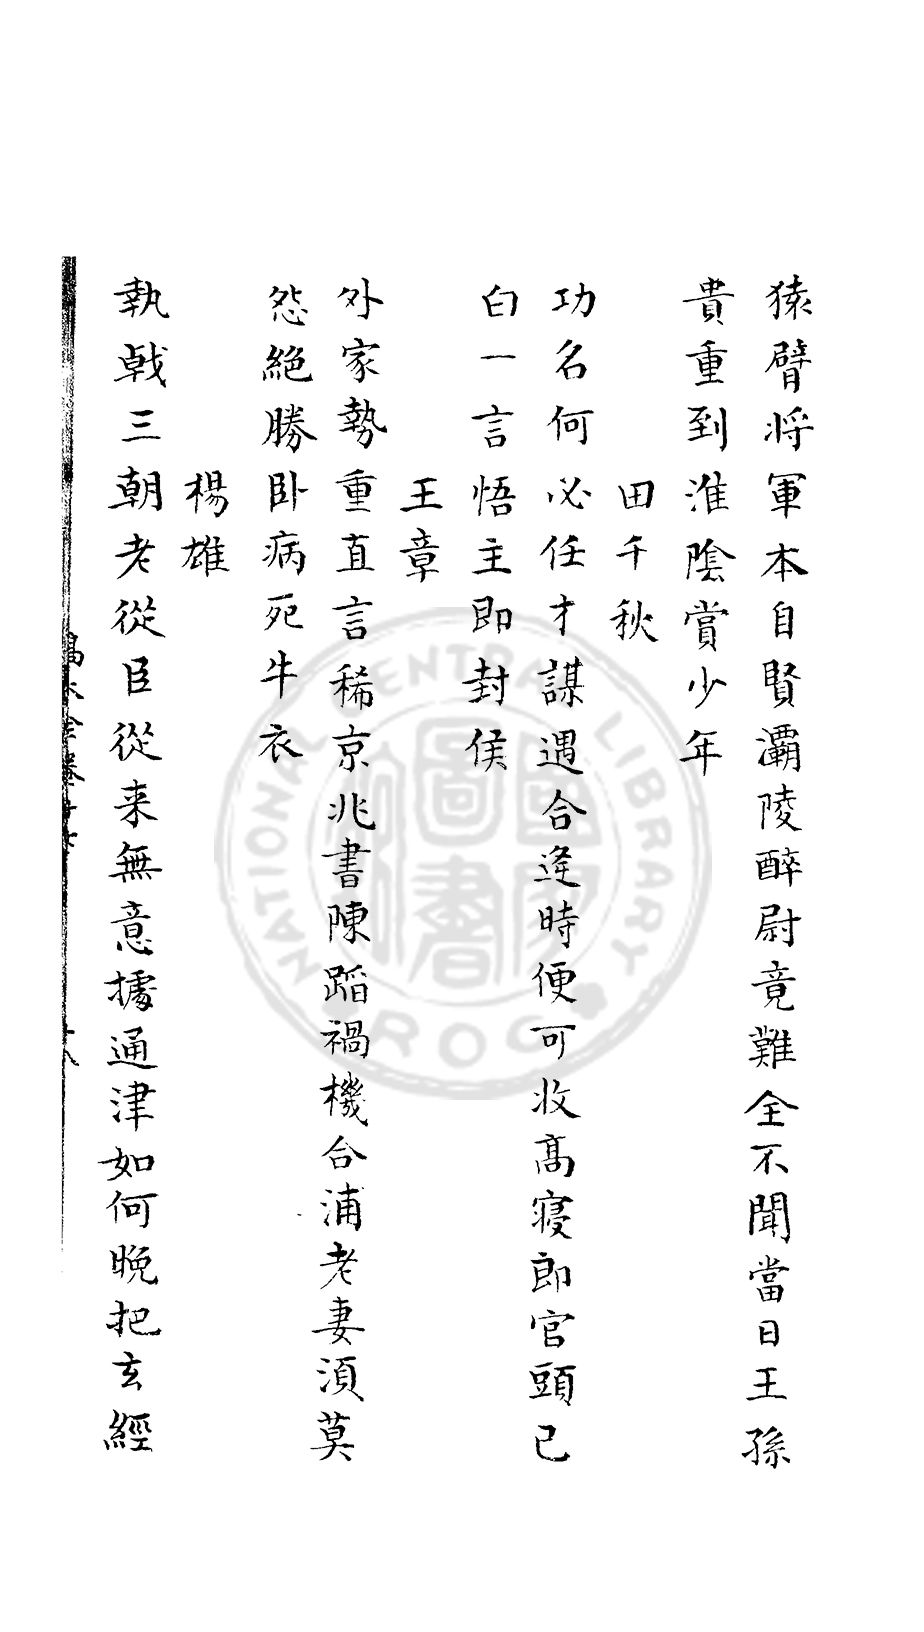 猿臂將軍本自賢灞陵醉尉竟難全不聞當日王孫
貴重到淮陰賞少年
田千秋
功名何必任才謀遇合逢時便可收高寢郎官頭已
白一言悟主即封侯
王章
外家勢重直言稀京兆書陳蹈禍機合浦老妻須莫
怨絕勝臥病死牛衣
楊雄
執戟三朝老從臣從来無意據通津如何晚把玄經
NATIONAL CENTRAL LIBRARY
ROC
國家圖書